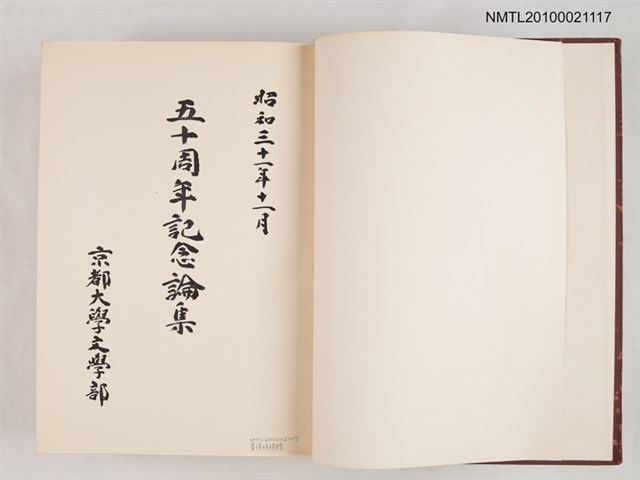 NMTL20100021117
昭和三十一年十一月
五十周年記念論集
京都大學文學部
NMTL 20100021117